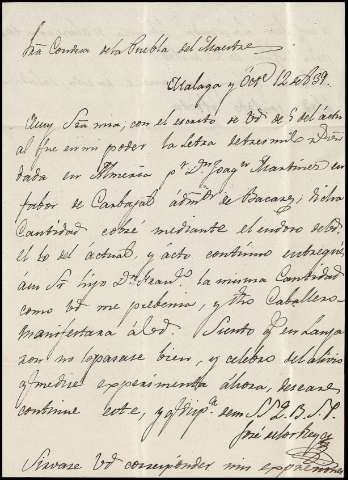 Sra Condesa de la Puebla del Maestre
Malaga y Oct.e 12 de 839.
Muy Sra mia, con el escrito de Vd. de 5 del actu
al fue en mi poder la letra de tres mil
dada en Almeria p.r Dn Joaqn Martinez en
fabor de Carbajal admor de Bacares; dicha
Cantidad cobré mediante el endoso de Vd.
el 10 del actual, y acto continuo entregué,
á su Sr hijo Dn Franco la misma Cantidad
como Vd me prebenia, y dho Caballero
manifestara á Vd. Siento qe en Lanja
ron no lo pasase bien, y celebro del alivio
qe me dice experimenta ahora, deseare
continue este, y qe
José de los Reyes
Sirvase Vd corresponder mis expresiones